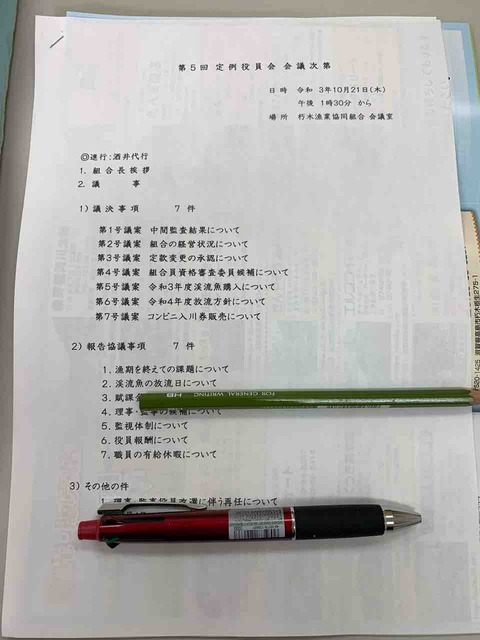 第5回 定例役員会 会議次第
日時 令和 3年10月21日(木)
午後 1時30分 から
場所 朽木漁業協同組合 会議室
◎進行:酒井代行
1. 組合長挨拶
2. 議 事
1) 議決事項 7 件
第1号議案 中間監査結果について
第2号議案 組合の経営状況について
第3号議案 定款変更の承認について
第4号議案 組合員資格審査委員候補について
第5号議案 令和3年度渓流魚購入について
第6号議案 令和4年度放流方針について
第7号議案 コンビニ入川券販売について
2) 報告協議事項 7 件
1. 漁期を終えての課題について
2. 渓流魚の放流日について
3. 賦課
FOR GENERAL WRITING HB
4. 理事・監事の候補について
5. 監視体制について
6. 役員報酬について
7. 職員の有給休暇について
3) その他の件
1. 理事・監事役員改選に伴う再任について